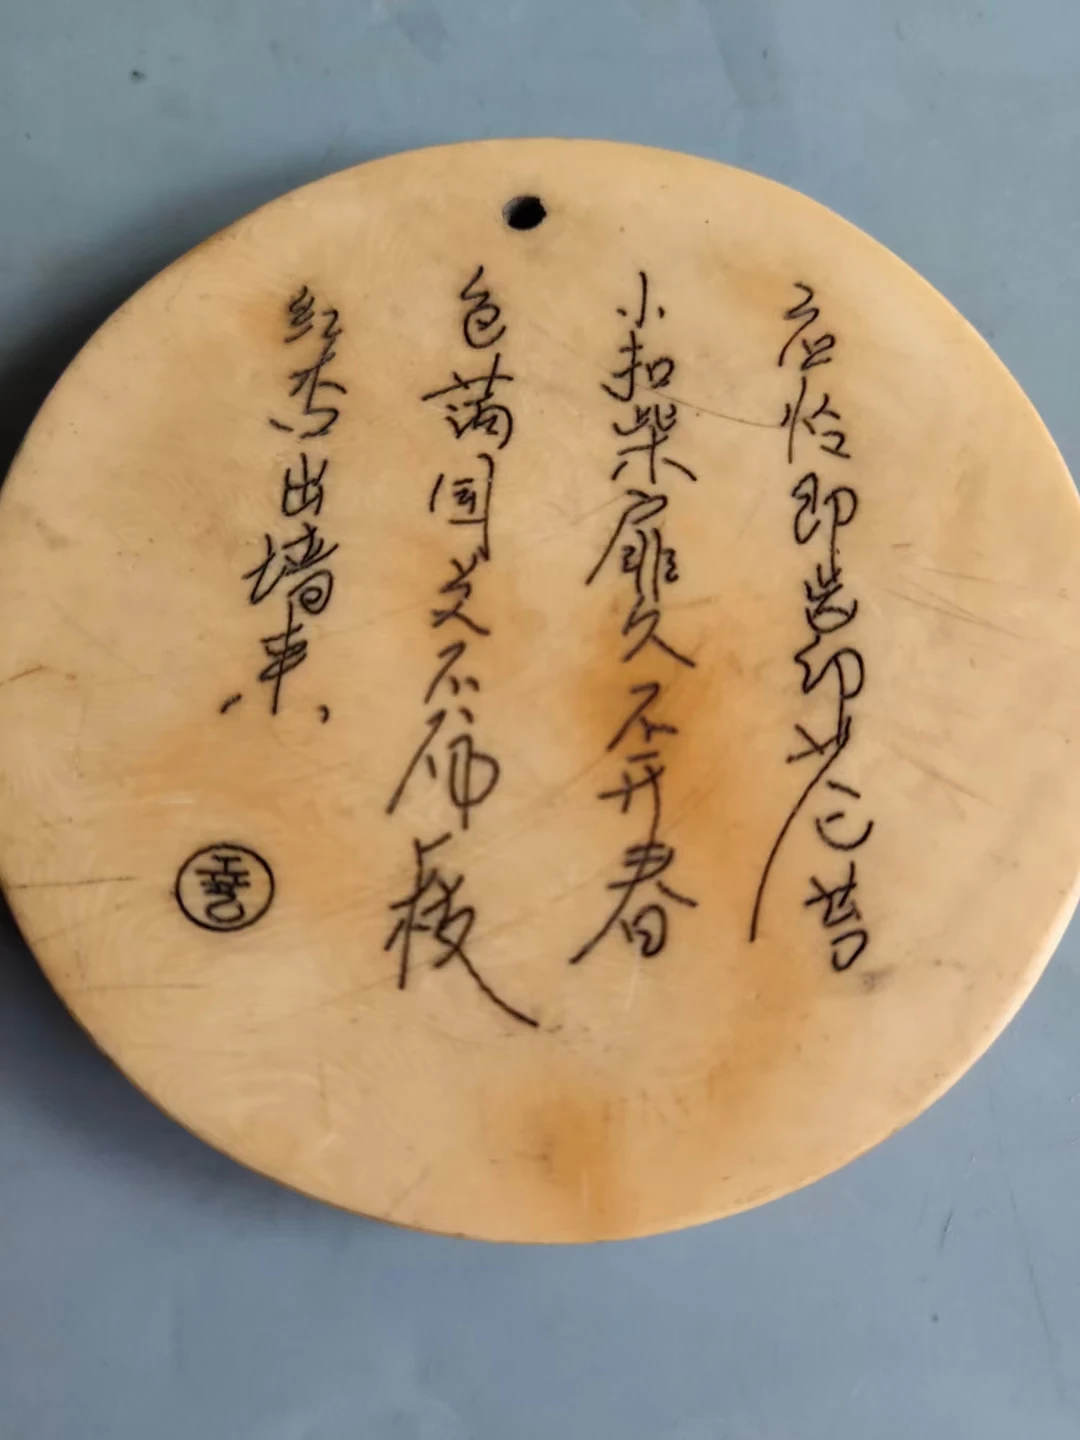 应怜即齿印苍苔
小扣柴扉久不开春
色满园关不一枝
红杏出墙来